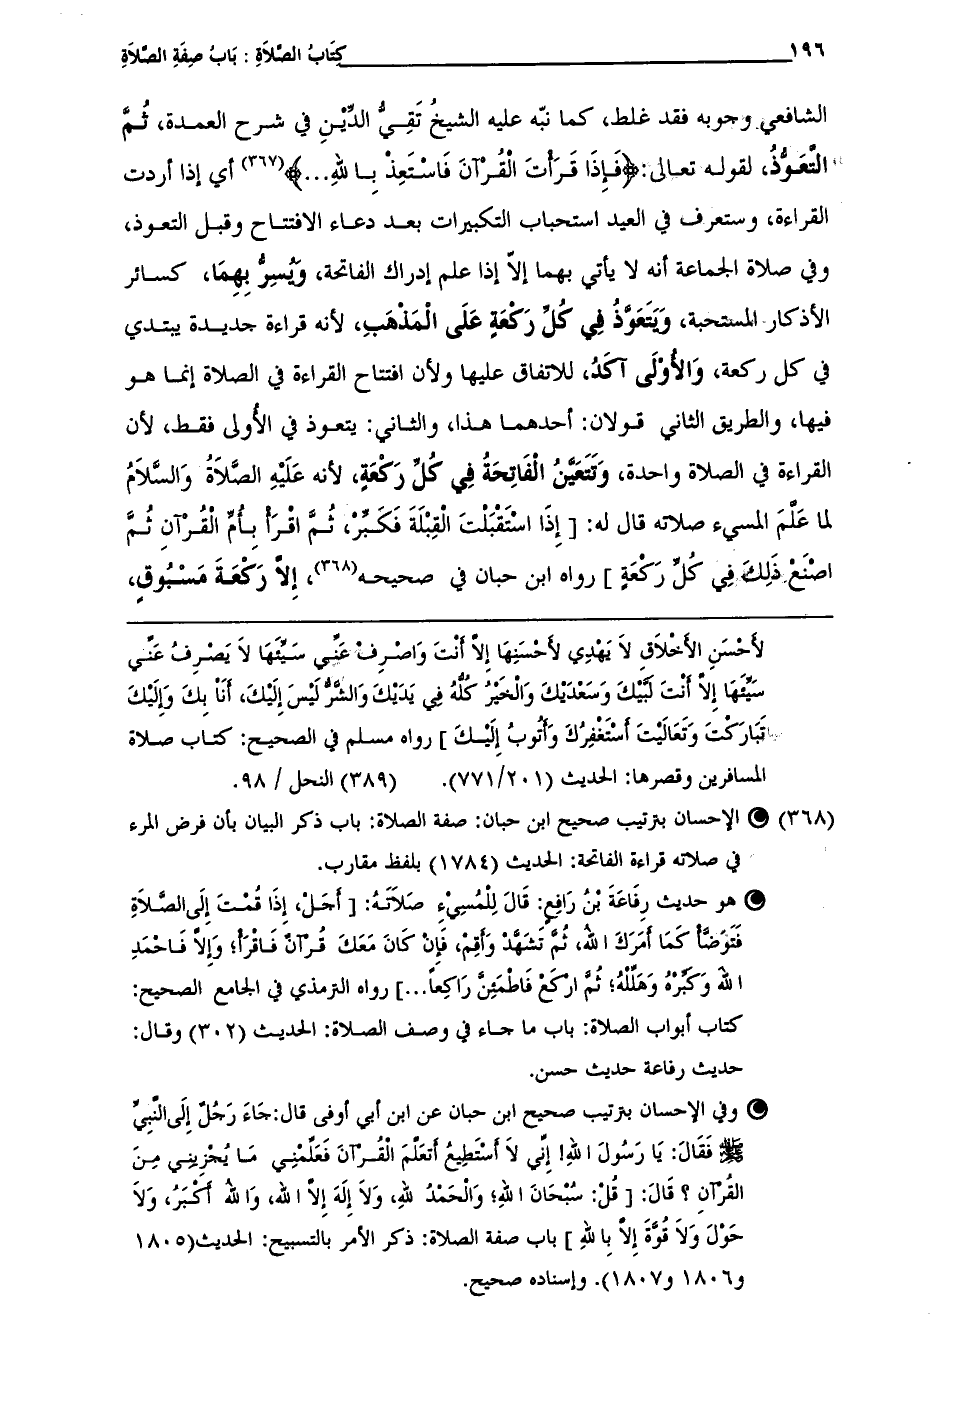 ١٩٦ كِتَابُ الصَّلَاةِ : بَابُ صِفَةِ الصَّلَاةِ
الشافعي وجوبه فقد غلط، كما نبّه عليه الشيخُ تَقِيُّ الدِّيْنِ في شرح العمدة، ثُمَّ
التَّعَوُّذُ، لقوله تعالى: ﴿فَإِذَا قَرَأْتَ الْقُرْآنَ فَاسْتَعِذْ بِاللهِ...﴾(٣٦٧) أي إذا أردت
القراءة، وستعرف في العيد استحباب التكبيرات بعد دعاء الافتتاح وقبل التعوذ،
وفي صلاة الجماعة أنه لا يأتي بهما إلاّ إذا علم إدراك الفاتحة، وَيُسِرُّ بِهِمَا، كسائر
الأذكار المستحبة، وَيَتَعَوَّذُ فِي كُلِّ رَكْعَةٍ عَلَى الْمَذْهَبِ، لأنه قراءة جديدة يبتدي
في كل ركعة، وَالأُوْلَى آكَدُ، للاتفاق عليها ولأن افتتاح القراءة في الصلاة إنما هو
فيها، والطريق الثاني قولان: أحدهما هذا، والثاني: يتعوذ في الأولى فقط، لأن
القراءة في الصلاة واحدة، وَتَتَعَيَّنُ الْفَاتِحَةُ فِي كُلِّ رَكْعَةٍ، لأنه عَلَيْهِ الصَّلَاةُ وَالسَّلَامُ
لما عَلَّمَ المسيء صلاته قال له: [ إِذَا اسْتَقْبَلْتَ الْقِبْلَةَ فَكَبِّرْ، ثُمَّ اقْرَأْ بِأُمِّ الْقُرْآنِ ثُمَّ
اصْنَعْ ذَلِكَ فِي كُلِّ رَكْعَةٍ ] رواه ابن حبان في صحيحه(٣٦٨)، إِلاَّ رَكْعَةَ مَسْبُوقٍ،
لأَحْسَنِ الأَخْلَاقِ لاَ يَهْدِي لأَحْسَنِهَا إِلاَّ أَنْتَ وَاصْرِفْ عَنِّي سَيِّئَهَا لاَ يَصْرِفُ عَنِّي
سَيِّئَهَا إِلاَّ أَنْتَ لَبَّيْكَ وَسَعْدَيْكَ وَالْخَيْرُ كُلُّهُ فِي يَدَيْكَ وَالشَّرُّ لَيْسَ إِلَيْكَ، أَنَا بِكَ وَإِلَيْكَ
تَبَارَكْتَ وَتَعَالَيْتَ أَسْتَغْفِرُكَ وَأَتُوبُ إِلَيْكَ ] رواه مسلم في الصحيح: كتاب صلاة
المسافرين وقصرها: الحديث (٧٧١/٢٠١). (٣٨٩) النحل / ٩٨.
(٣٦٨) الإحسان بترتيب صحيح ابن حبان: صفة الصلاة: باب ذكر البيان بأن فرض المرء
في صلاته قراءة الفاتحة: الحديث (١٧٨٤) بلفظ مقارب.
هو حديث رِفَاعَةَ بْنُ رَافِعٍ: قَالَ لِلْمُسِيْءِ صَلَاتَهُ: [ أَجَلْ، إِذَا قُمْتَ إِلَى الصَّلَاةِ
فَتَوَضَّأْ كَمَا أَمَرَكَ اللهُ، ثُمَّ تَشَهَّدْ وَأَقِمْ، فَإِنْ كَانَ مَعَكَ قُرْآنٌ فَاقْرَأْ؛ وَإِلاَّ فَاحْمَدِ
اللهَ وَكَبِّرْهُ وَهَلِّلْهُ؛ ثُمَّ ارْكَعْ فَاطْمَئِنَّ رَاكِعاً...] رواه الترمذي في الجامع الصحيح:
كتاب أبواب الصلاة: باب ما جاء في وصف الصلاة: الحديث (٣٠٢) وقال:
حديث رفاعة حديث حسن.
وفي الإحسان بترتيب صحيح ابن حبان عن ابن أبي أوفى قال: جَاءَ رَجُلٌ إِلَى النَّبِيِّ
ﷺ فَقَالَ: يَا رَسُولَ اللهِ! إِنِّي لاَ أَسْتَطِيعُ أَتَعَلَّمَ الْقُرْآنَ فَعَلِّمْنِي مَا يُجْزِينِي مِنَ
الْقُرْآنِ ؟ قَالَ: [ قُلْ: سُبْحَانَ اللهِ؛ وَالْحَمْدُ لِلهِ، وَلاَ إِلَهَ إِلاَّ اللهُ، وَاللهُ أَكْبَرُ، وَلاَ
حَوْلَ وَلاَ قُوَّةَ إِلاَّ بِاللهِ ] باب صفة الصلاة: ذكر الأمر بالتسبيح: الحديث(١٨٠٥
و١٨٠٦ و١٨٠٧). وإسناده صحيح.